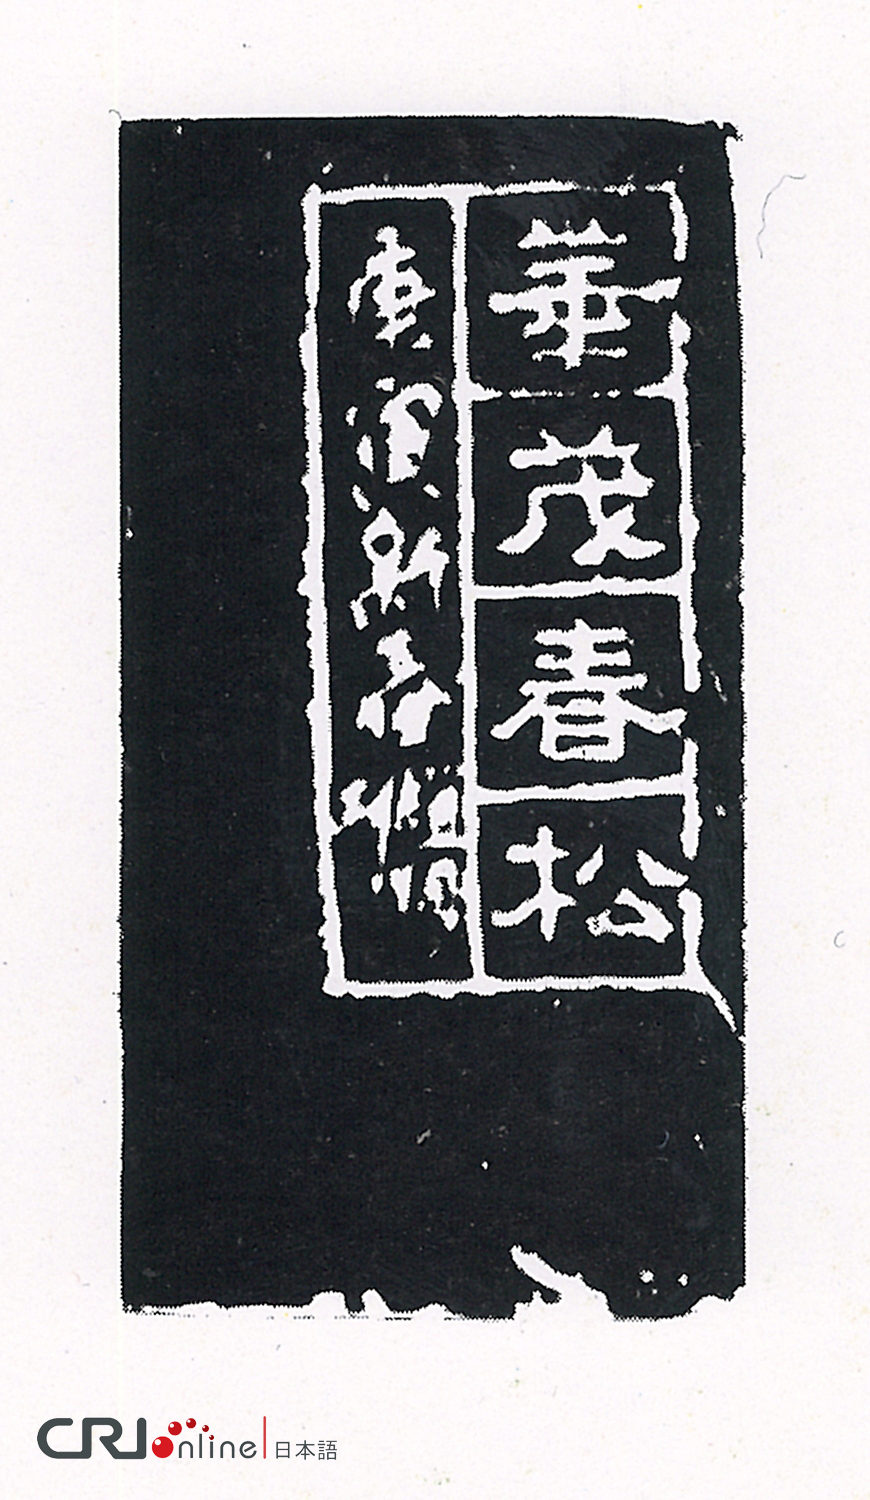 華茂春松
庚寅新春
CRIonline 日本語